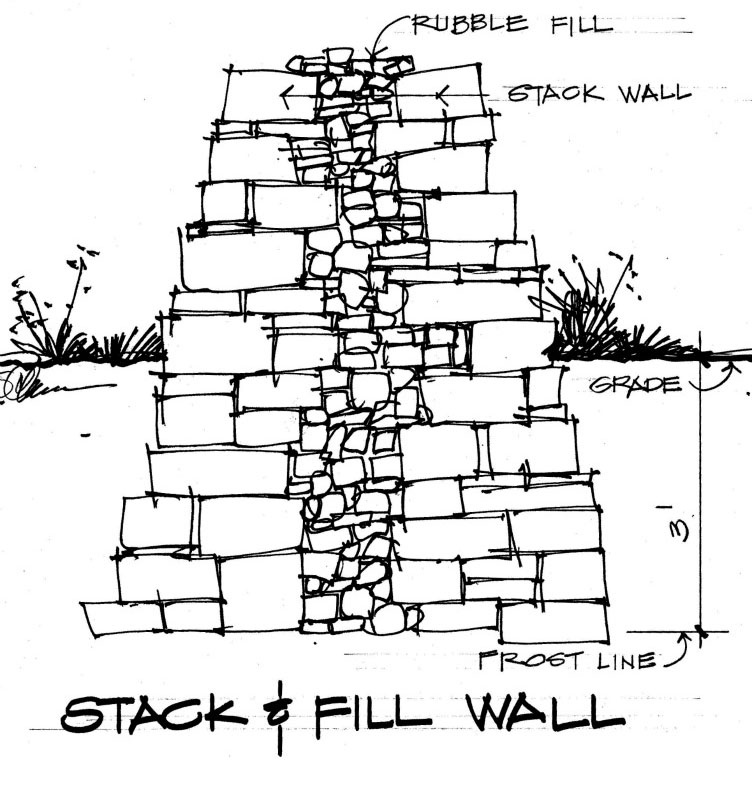 RUBBLE FILL
STACK WALL
GRADE
3'
FROST LINE
STACK & FILL WALL